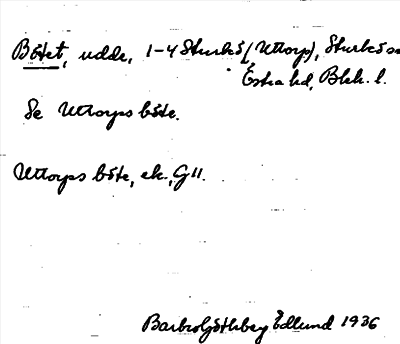 Bötet, udde, 1-4 Sturkö (Uttorp), Sturkö sn
Östra hd, Blek. l.
Se Uttorps böte.
Uttorps böte, ek., G11.
Barbro Göthberg Edlund 1936